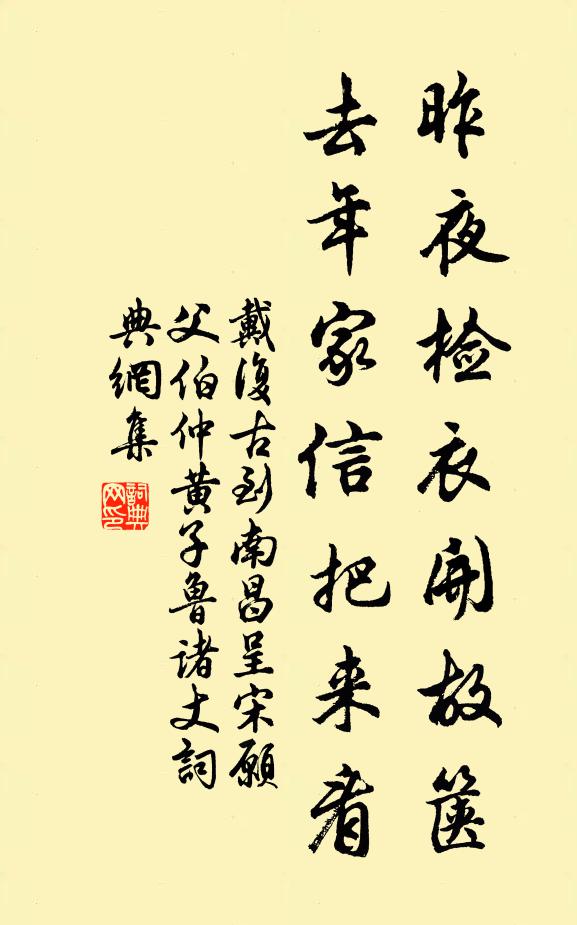 昨夜检衣开故箧
去年家信把来看
戴復古到南昌呈宋願
父伯仲黄子魯诸丈詞
典網集
詞典
网印